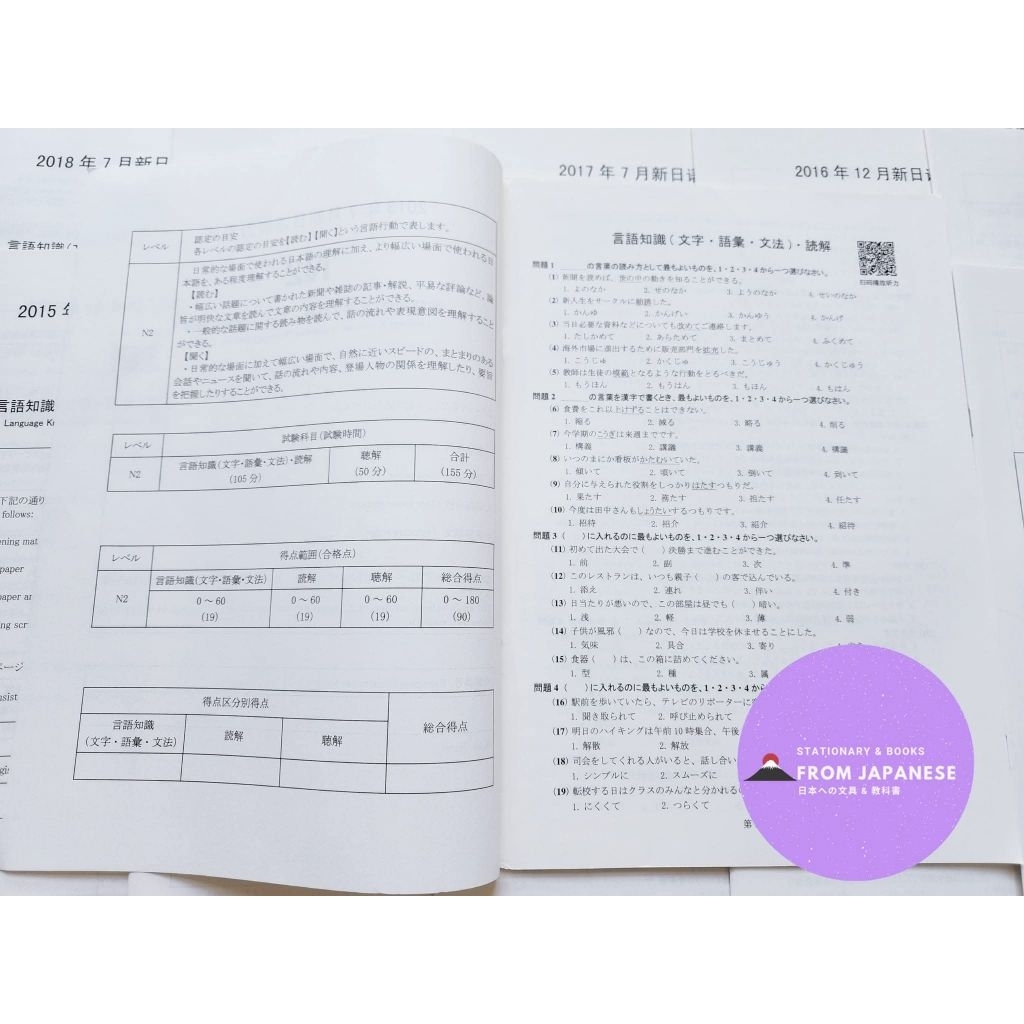 2018 年 7 月新日
2017 年 7 月新日
2016 年 12 月新日
2015
言語知識
言語知識
Language
下記の通り
follows:
paper
ページ
レベル
認定の目安
各レベルの認定の目安を【読む】【聞く】という言語行動で表します。
N2
日常的な場面で使われる日本語の理解に加え、より幅広い場面で使われる日
本語を、ある程度理解することができる。
【読む】
・幅広い話題について書かれた新聞や雑誌の記事・解説、平易な評論など、論
旨が明快な文章を読んで文章の内容を理解することができる。
・一般的な話題に関する読み物を読んで、話の流れや表現意図を理解すること
ができる。
【聞く】
・日常的な場面に加えて幅広い場面で、自然に近いスピードの、まとまりのある
会話やニュースを聞いて、話の流れや内容、登場人物の関係を理解したり、要旨
を把握したりすることができる。
レベル 試験科目(試験時間)
N2 言語知識(文字・語彙・文法)・読解 聴解 合計
(105 分) (50 分) (155 分)
レベル 得点範囲(合格点)
N2 言語知識(文字・語彙・文法) 読解 聴解 総合得点
0 ～ 60 0 ～ 60 0 ～ 60 0 ～ 180
(19) (19) (19) (90)
得点区分別得点 総合得点
言語知識 読解 聴解
(文字・語彙・文法)
言語知識(文字・語彙・文法)・読解
扫码播放听力
問題 1 ＿＿＿の言葉の読み方として最もよいものを、1・2・3・4 から一つ選びなさい。
(1) 新聞を読めば、世の中の動きを知ることができる。
1. よのなか 2. せのなか 3. ようのなか 4. せいのなか
(2) 新人生をサークルに勧誘した。
1. かんゆ 2. かんげい 3. かんゆう 4. かんげ
(3) 当日必要な資料などについても改めてご連絡します。
1. たしかめて 2. あらためて 3. まとめて 4. みくめて
(4) 海外市場に進出するために販売部門を拡充した。
1. こうじゅ 2. かくじゅ 3. こうじゅう 4. かくじゅう
(5) 教師は生徒の模範となるような行動をとるべきだ。
1. もうほん 2. もうはん 3. もほん 4. もはん
問題 2 ＿＿＿の言葉を漢字で書くとき、最もよいものを、1・2・3・4 から一つ選びなさい。
(6) 食費をこれ以上けずることはできない。
1. 縮る 2. 減る 3. 略る 4. 削る
(7) 今学期のこうぎは来週までです。
1. 構義 2. 講議 3. 講義 4. 構議
(8) いつのまにか看板がかたむいていた。
1. 傾いて 2. 頃いて 3. 倒いて 4. 到いて
(9) 自分に与えられた役割をしっかりはたすつもりだ。
1. 果たす 2. 務たす 3. 担たす 4. 任たす
(10) 今度は田中さんもしょうたいするつもりです。
1. 招待 2. 招介 3. 紹介 4. 紹待
問題 3 ( )に入れるのに最もよいものを、1・2・3・4 から一つ選びなさい。
(11) 初めて出た大会で( )決勝まで進むことができた。
1. 前 2. 副 3. 次 4. 準
(12) このレストランは、いつも親子( )の客で込んでいる。
1. 添え 2. 連れ 3. 伴い 4. 付き
(13) 日当たりが悪いので、この部屋は昼でも( )暗い。
1. 浅 2. 軽 3. 薄 4. 弱
(14) 子供が風邪( )なので、今日は学校を休ませることにした。
1. 気味 2. 具合 3. 寄り
(15) 食器( )は、この箱に詰めてください。
1. 型 2. 種 3. 属
問題 4 ( )に入れるのに最もよいものを、1・2・3・4 から
(16) 駅前を歩いていたら、テレビのリポーターに
1. 聞き取られて 2. 呼び止められて
(17) 明日のハイキングは午前 10 時集合、午後
1. 解散 2. 解放
(18) 司会をしてくれる人がいると、話し合い
1. シンプルに 2. スムーズに
(19) 転校する日はクラスのみんなと分かれる
1. にくくて 2. つらくて
第
STATIONARY & BOOKS
FROM JAPANESE
日本への文具 & 教科書